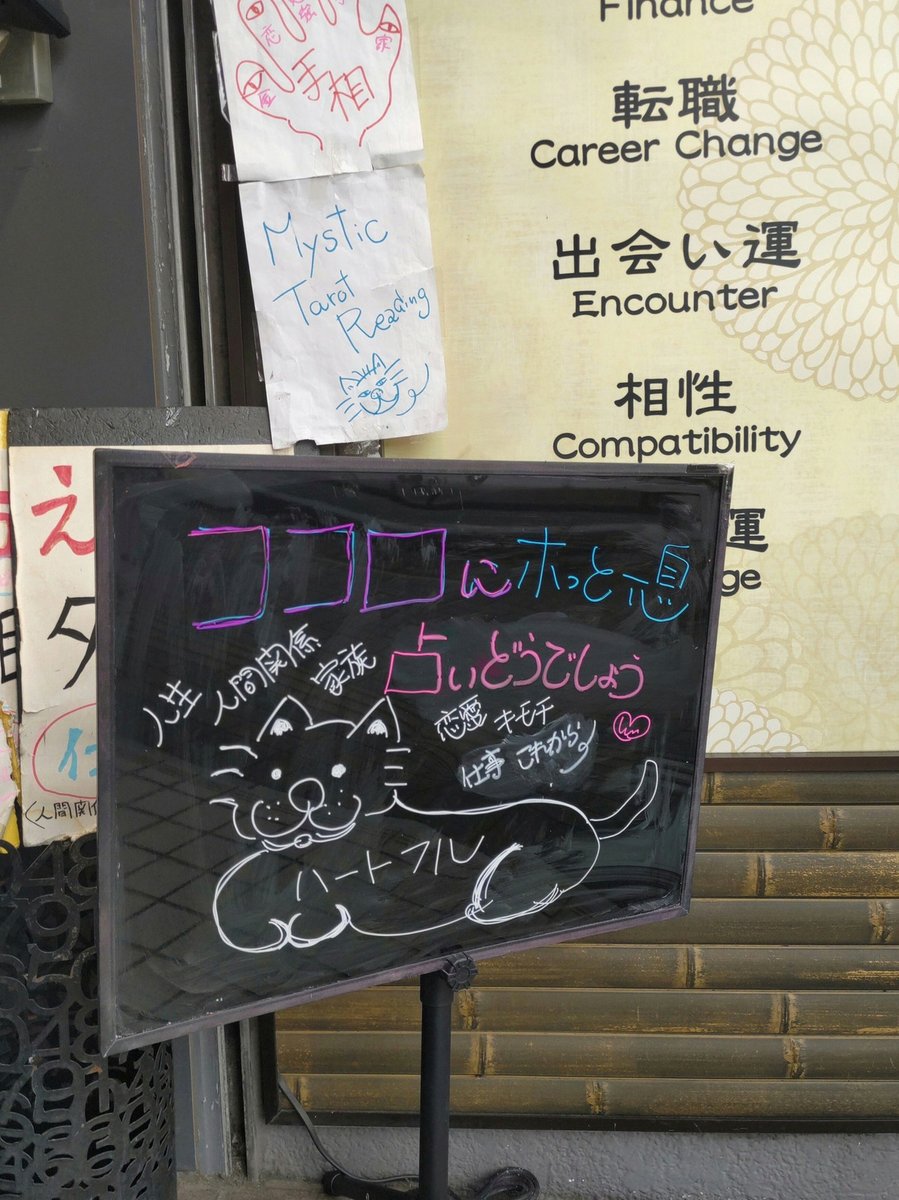 恋
家
手相
Mystic
Tarot
Reading
Finance
転職
Career Change
出会い運
Encounter
相性
Compatibility
運
ge
え
タ
人間関係
ココロにホっと一息
占いどうでしょう
人生
人間関係
家族
恋愛
キモチ
仕事
これから
ハートフル